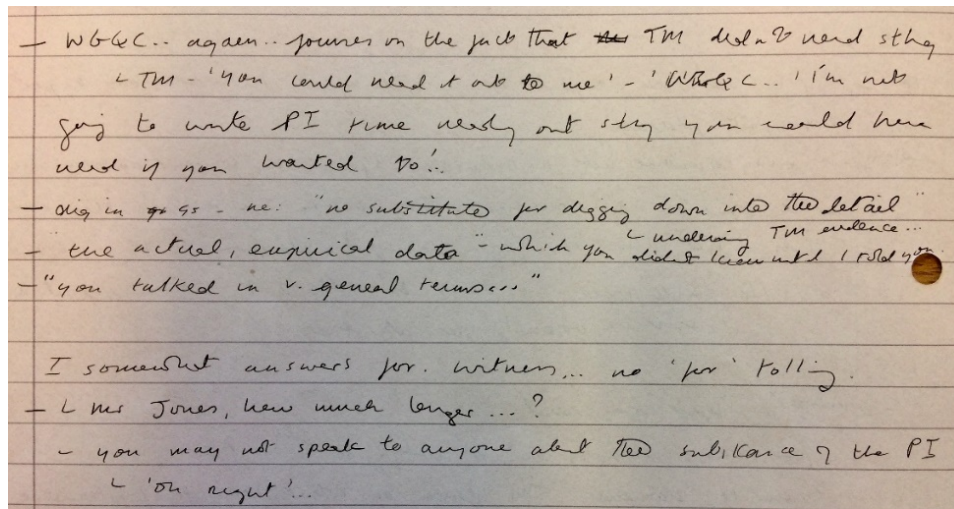 - WGQC.. again.. focuses on the fact that TM didn't read sthg
└ TM - 'you could read it out to me' - 'WGQC.. 'I'm not
going to waste PI time reading out sthg you could have
read if you wanted to'..
- dig in as - re: "no substitute for digging down into the detail"
└ undermining TM evidence...
- "the actual, empirical data" - which you didn't know until I told you
- "you talked in v. general terms..."
I somewhat answers for. witness... no 'for' tolling.
- └ Mr Jones, how much longer...?
- you may not speak to anyone about the substance of the PI
└ 'oh right'...